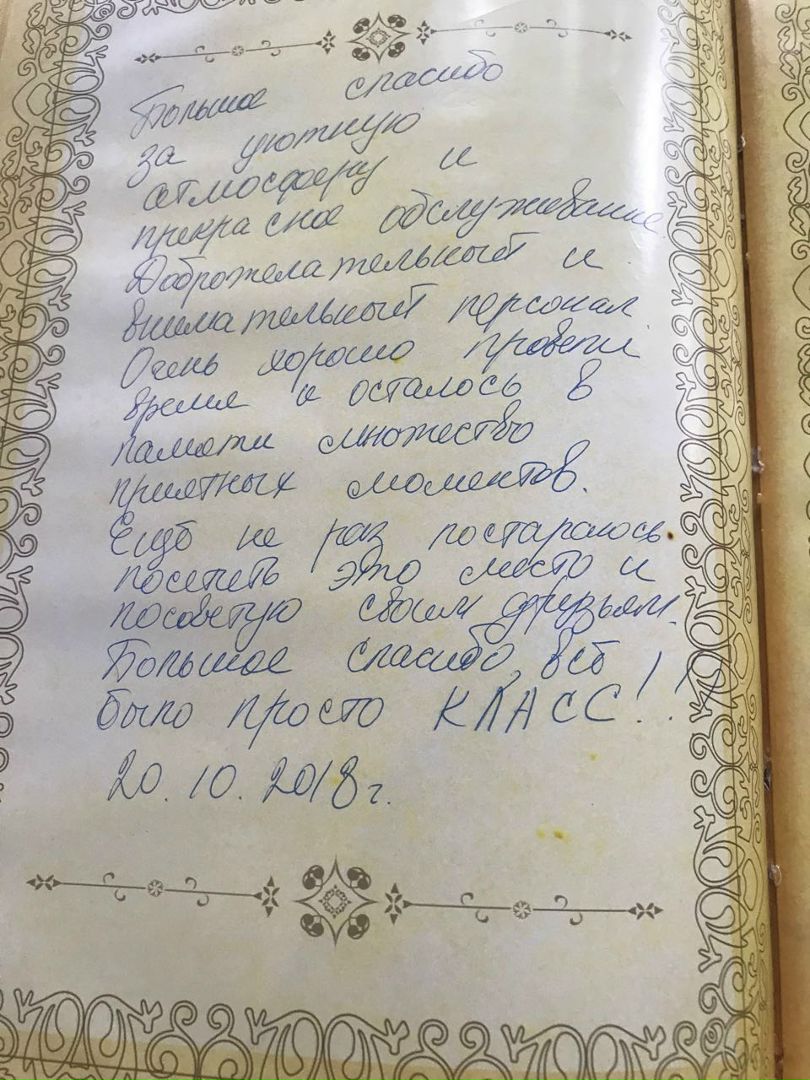 Большое спасибо
за уютную
атмосферу и
прекрасное обслуживание
Доброжелательный и
внимательный персонал.
Очень хорошо провели
время и осталось в
памяти множество
приятных моментов.
Ещё не раз постараюсь
посетить это место и
посоветую своим друзьям.
Большое спасибо, всё
было просто КЛАСС!!!
20.10.2018г.